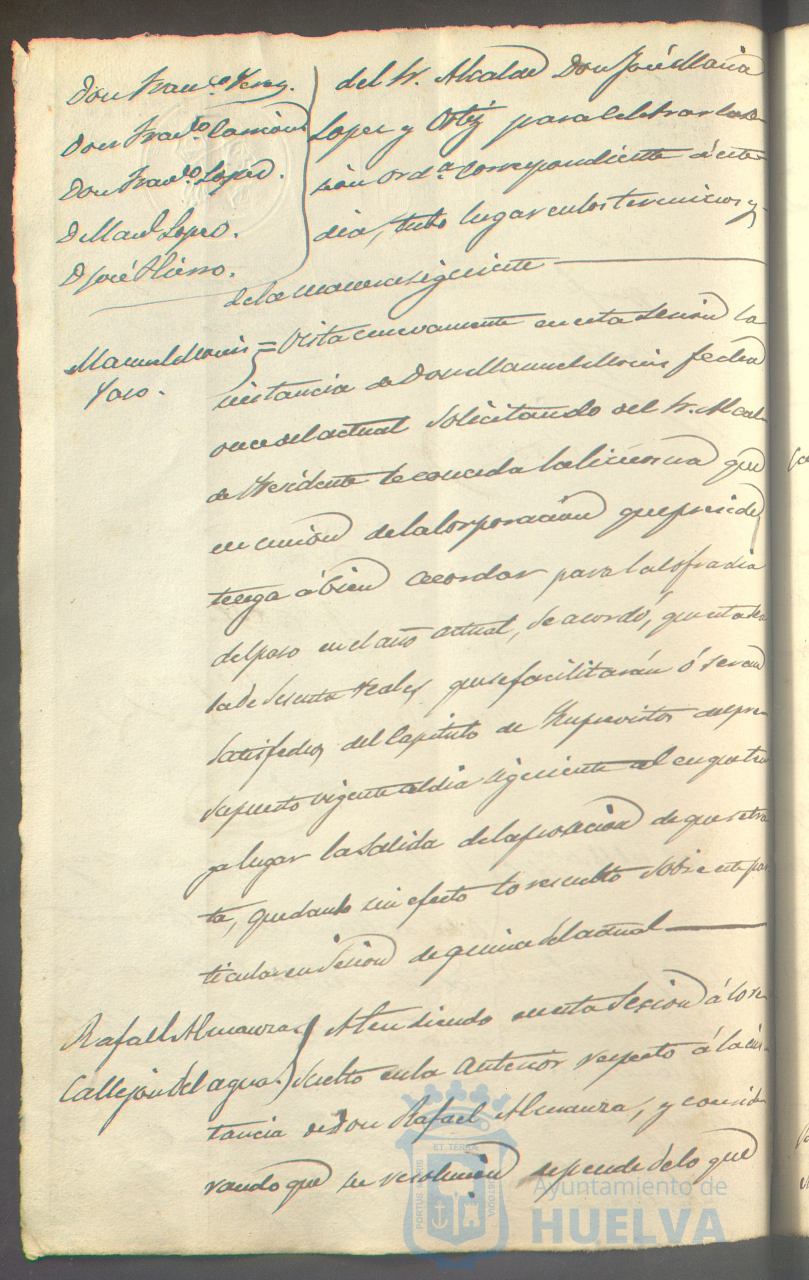 Don Franco Perez.
Don Franco Carrion
Don Franco Lopez.
D Manl Lopez.
D José Hierro.
del Sr. Alcalde Don José Maria
Lopez y Ortiz para celebrar la se-
sión orda correspondiente á este
dia, tubo lugar en los terminos y
de la manera siguiente
Manuel Monis
Paso.
= Vista nuevamente en esta sesion la
instancia de Don Manuel Monis fecha
once del actual solicitando del Sr. Alcal-
de Presidente le conceda la licencia que
en union de la Corporación que preside
tenga á bien acordar para la Cofradia
del paso en el año actual, se acordó, que esta sea
la de sesenta reales que se facilitarán ó seran
satisfechos del Capitulo de Imprevistos del pre-
supuesto vigente al dia siguiente al en que ten-
ga lugar la salida de la procesion de que se tra-
ta, quedando sin efecto lo resuelto sobre este par-
ticular en sesion de quince del actual
Rafael Almanza
Callejon del agua.
Atendiendo en esta sesion á lo re-
suelto en la anterior respecto á la ins-
tancia de Don Rafael Almanza, y conside-
rando que su resolucion depende de lo que
PORTUS MARIS
ET TERRAE
CUSTODIA
Ayuntamiento de
HUELVA